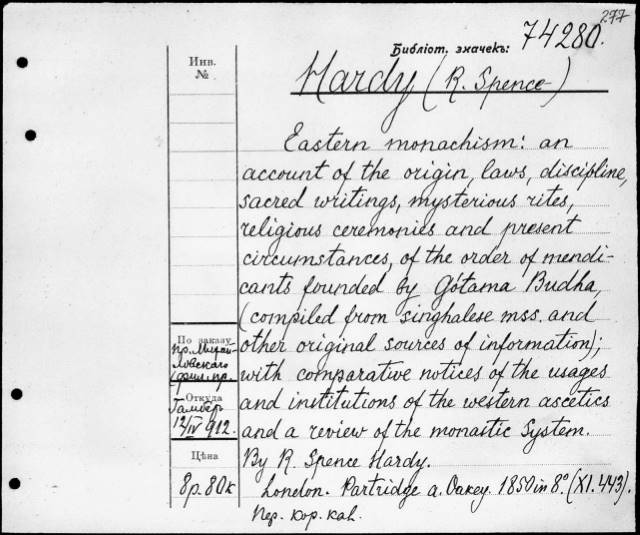 277
Библіот. значекъ: 74280.
Инв.
№
Hardy (R. Spence)
Eastern monachism: an
account of the origin, laws, discipline,
sacred writings, mysterious rites,
religious ceremonies and present
circumstances, of the order of mendi-
cants founded by Gótama Budha,
(compiled from singhalese mss. and
other original sources of information);
with comparative notices of the usages
and institutions of the western ascetics
and a review of the monastic System.
By R. Spence Hardy.
London. Partridge a. Oakey. 1850 in 8º. (XI. 443).
Пер. кор. кан.
По заказу
пр. Михай-
ловскаго
Откуда
Гамберъ
12/IV 912.
Цѣна
8 р. 80 к